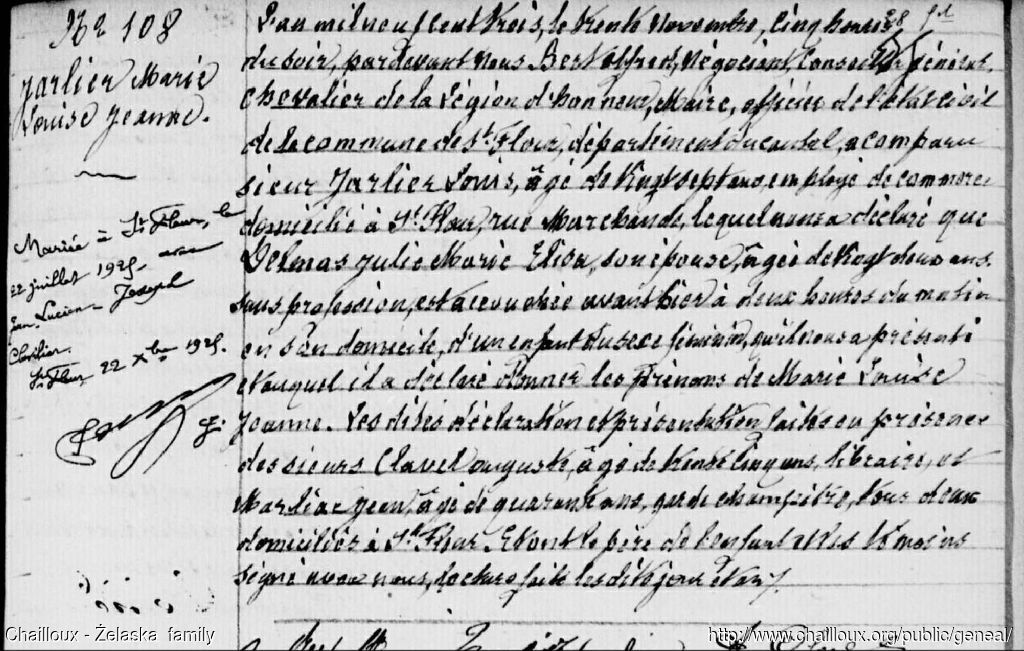 No 108
Jarlier Marie
Louise Jeanne.
Mariée à St Flour, le
22 juillet 1925 avec
Jean Lucien Joseph
St Flour 22 Xbre 1925.
L'an mil neuf cent trois, le trente Novembre, cinq heures
du soir, pardevant Nous Bert Alfred, Négociant, Conseiller Général,
Chevalier de la Légion d'honneur, Maire, officier de l'état civil
de la commune de St Flour, département du Cantal, a comparu
sieur Jarlier Louis, âgé de vingt sept ans, employé de commerce
domicilié à St Flour, rue Marchande, lequel nous a déclaré que
Delmas Julie Marie Elisa, son épouse, âgée de vingt deux ans,
sans profession, est accouchée avant hier à deux heures du matin
en son domicile, d'un enfant du sexe féminin, qu'il nous a présenté
et auquel il a déclaré donner les prénoms de Marie Louise
Jeanne. Les dites déclaration et présentation faites en présence
des sieurs Clavel Auguste, âgé de trente cinq ans, libraire, et
Marliac Jean, âgé de quarante ans, garde champêtre, tous deux
domiciliés à St Flour. Et ont le père de l'enfant et les témoins
signé avec nous, lecture faite les dits jour et an./.
Chailloux - Żelaska family
http://www.chailloux.org/public/geneal/